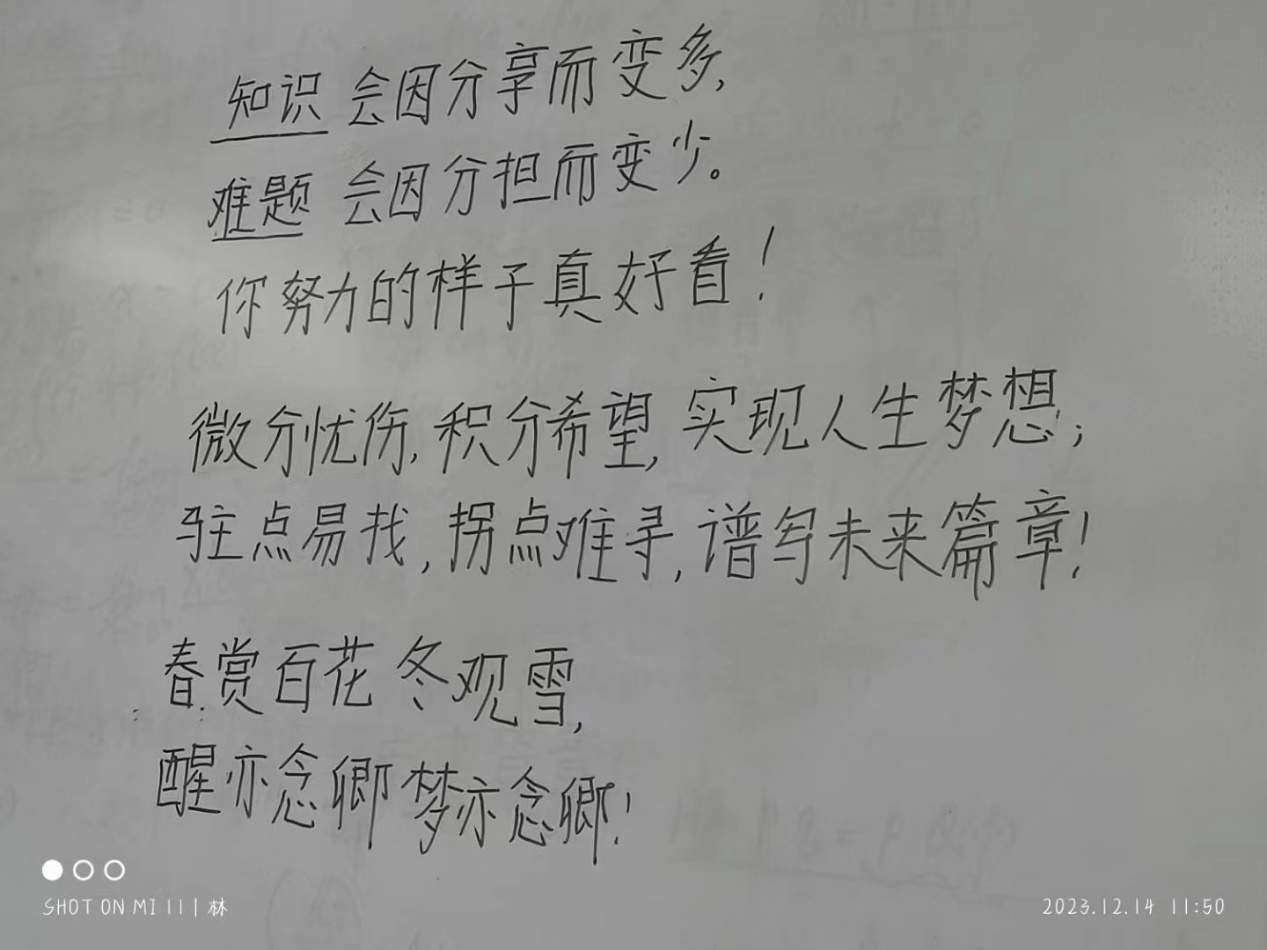 知识 会因分享而变多,
难题 会因分担而变少。
你努力的样子真好看!
微分忧伤,积分希望,实现人生梦想;
驻点易找,拐点难寻,谱写未来篇章!
春赏百花 冬观雪,
醒亦念卿 梦亦念卿!
SHOT ON MI 11 | 林
2023.12.14 11:50